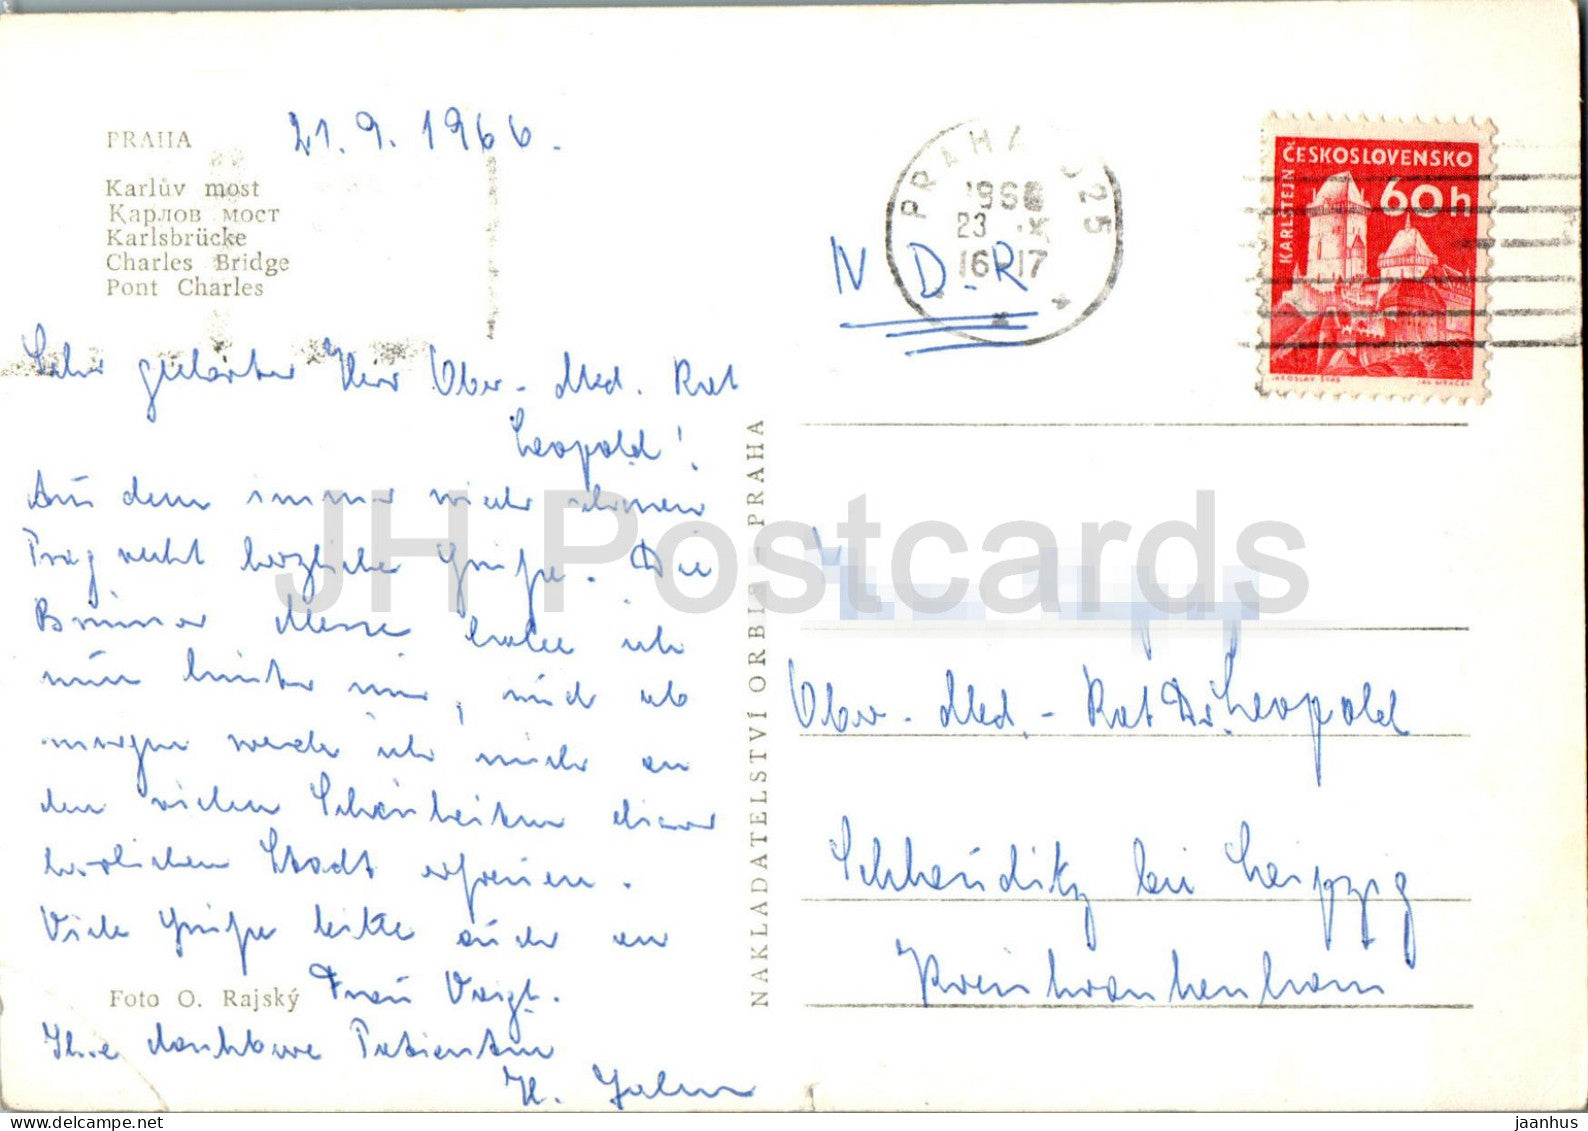 PRAHA
21.9.1966.
Karlův most
Карлов мост
Karlsbrücke
Charles Bridge
Pont Charles
Sehr geehrter Herr Ober-Med. Rat
Leopold!
Aus dem immer wieder schönen
Prag recht herzliche Grüße. Die
Brünner Messe habe ich
nun hinter mir, und ab
morgen werde ich mich an
den vielen Schönheiten dieser
herrlichen Stadt erfreuen.
Viele Grüße bitte auch an
Frau Voigt.
Foto O. Rajský
Ihre dankbare Patientin
H.
NAKLADATELSTVÍ ORBIS - PRAHA
PRAHA 025
1966
23 IX
16-17
DDR
ČESKOSLOVENSKO
60h
KARLŠTEJN
JAROSLAV ŠVÁB
JAN MRÁČEK
Ober-Med.-Rat Dr. Leopold
Schkeuditz bei Leipzig
Kreiskrankenhaus
JH Postcards
jaanhus - www.delcampe.net